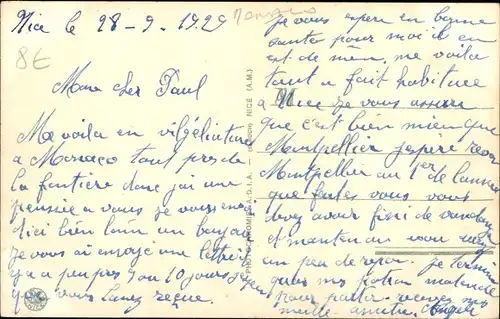 Nice le 28-9-1929
8€
Mon cher Paul
Me voila en viljeliature
a Monaco tout pres de
la frontiere donc jai une
pensée a vous je vous envoi
d'ici bien loin un
je vous ai envoyé une lettre
y a a peu pres 9 ou 10 jours
que vous lavez reçue.
je vous espere en bonne
santé pour moi il en
est de mem. me voila
tout a fait habituée
a Nice je vous assure
que c'est bien mieu que
Montpellier jespere
Montpellier au 1er de lannee
que faites vous vous
devez avoir fini de
et maintenau vou
un peu de repos. je termine
mes
pour partir recevez mes
meille amitiés Angele
NICE (A.M.)